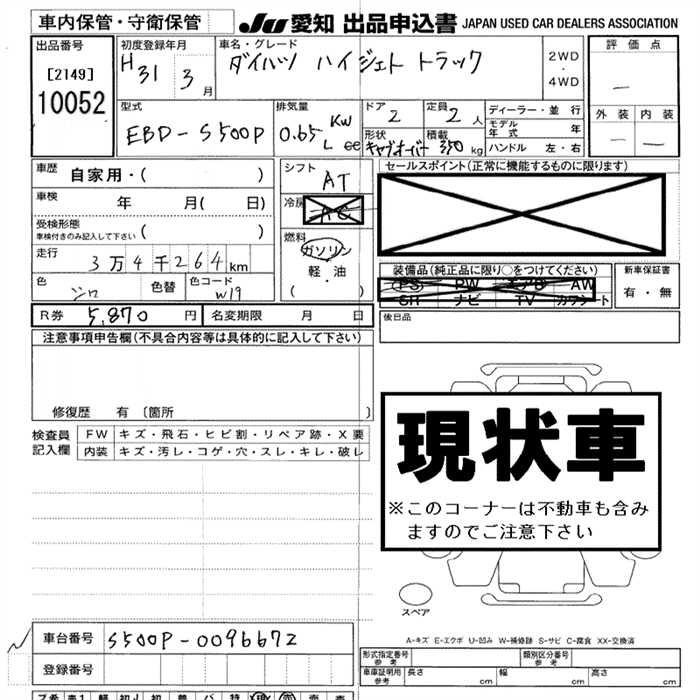 車内保管・守衛保管
JU 愛知 出品申込書 JAPAN USED CAR DEALERS ASSOCIATION
出品番号
[2149]
10052
初度登録年月
H31 3月
車名・グレード
ダイハツ ハイジェト トラック
2WD
・
4WD
評価点
—
外装 内装
— —
型式
EBD-S500P
排気量
0.65 Kw
L cc
ドア 2
定員 2人
形状 キャブオーバ
積載 350kg
ディーラー・並行
モデル年式 年
ハンドル 左・右
車歴 自家用・( )
車検 年 月( 日)
受検形態
車検付きのみ記入して下さい ( )
走行 3万4千264km
色 シロ
色替
色コード W19
シフト AT
冷房 AC
燃料
ガソリン
軽・油
( )
セールスポイント(正常に機能するものに限ります)
装備品(純正品に限り○をつけてください)
PS PW エアB AW
SR ナビ TV カワシート
新車保証書
有・無
R券 5,870円
名変期限 月 日
後日品
注意事項申告欄(不具合内容等は具体的に記入して下さい)
修復歴 有 〔箇所 〕
検査員記入欄
FW キズ・飛石・ヒビ割・リペア跡・X要
内装 キズ・汚レ・コゲ・穴・スレ・キレ・破レ
現状車
※このコーナーは不動車も含み
ますのでご注意下さい
スペア
A-キズ E-エクボ U-凹み W-補修跡 S-サビ C-腐食 XX-交換済
車台番号 S500P-0096672
登録番号
形式指定番号 参考
類区分番号 参考
車庫証明用 参考 長さ cm 幅 cm 高さ cm